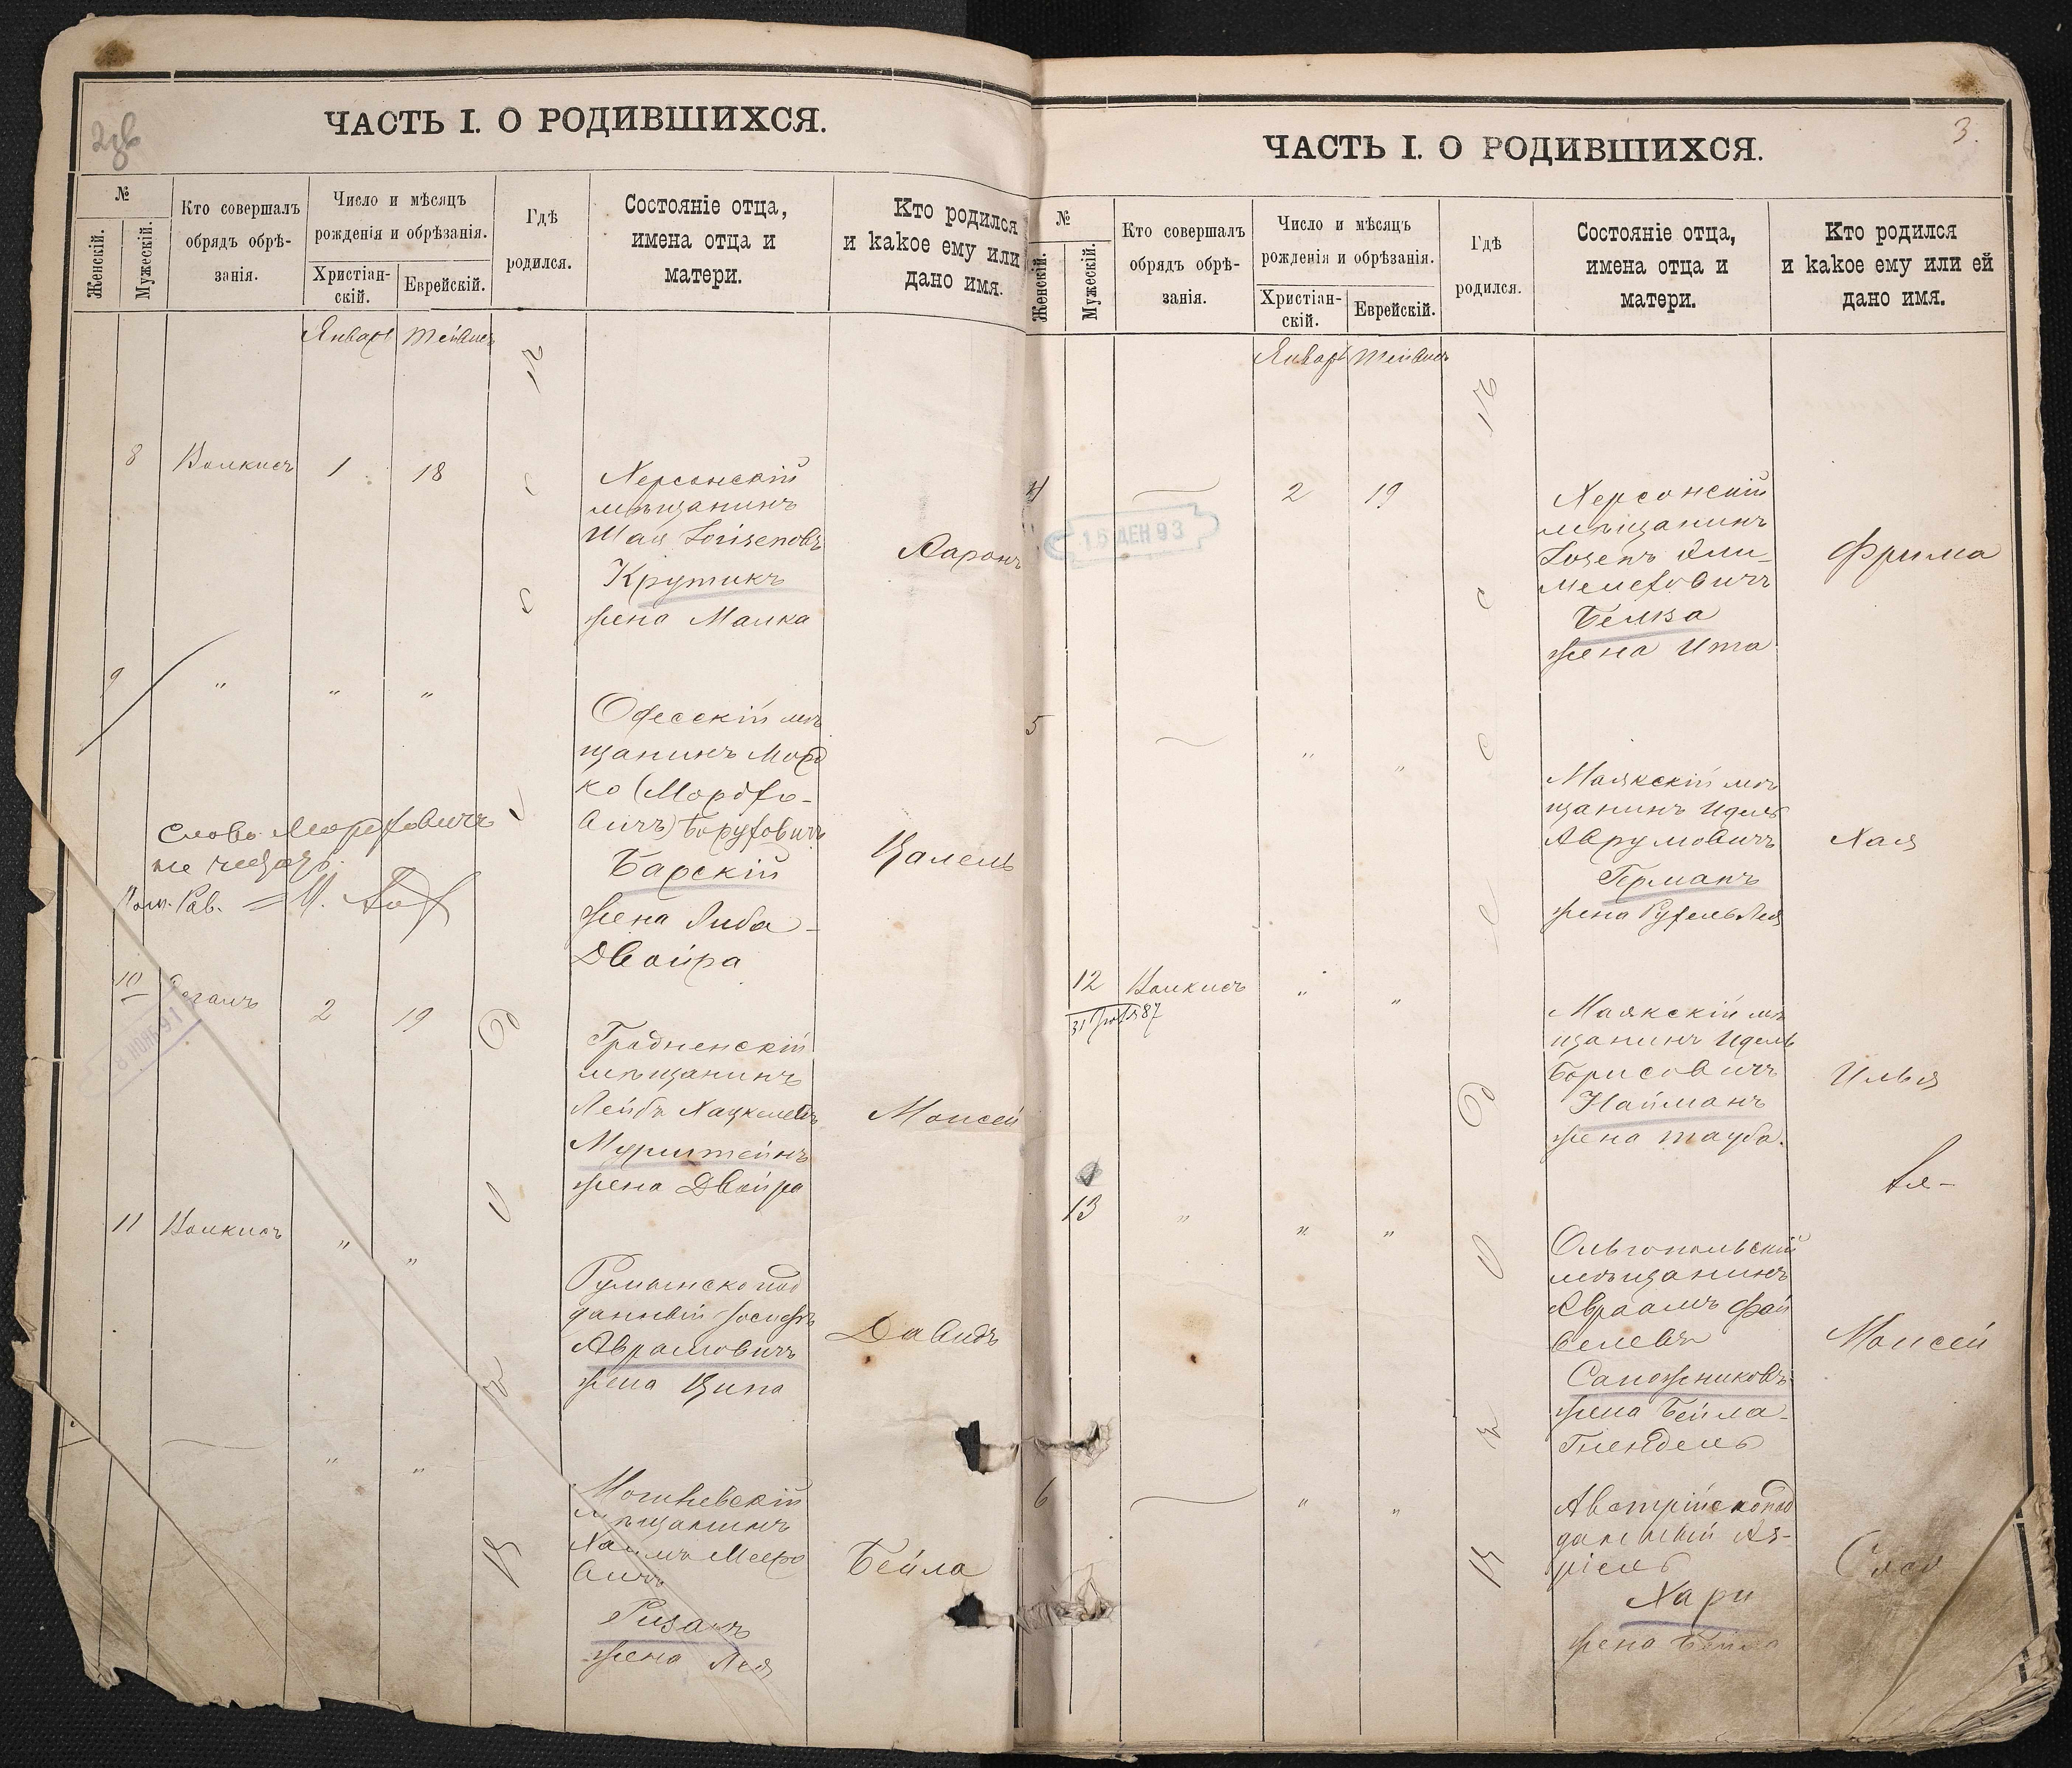 2об
ЧАСТЬ I. О РОДИВШИХСЯ.
№
Женскій.
Мужескій.
Кто совершалъ
обрядъ обрѣ-
занія.
Число и мѣсяцъ
рожденія и обрѣзанія.
Христіан-
скій.
Еврейскій.
Гдѣ
родился.
Состояніе отца,
имена отца и
матери.
Кто родился
и какое ему или
дано имя.
Январь Тейвисъ
8 Волкисъ 1 18
Херсонскій
мѣщанинъ
Шая
Крутикъ
жена Малка
Ааронъ
9 " " "
Одесскій мѣ
щанинъ Морд
ко (Мордхо-
вичъ) Боруховичъ
Барскій
жена Либа-
Двойра
Цалель
Слово Мордховичъ
не читать.
Пом. Рав.
10 2 19
8 НОЯ 91
Гродненскій
мѣщанинъ
Лейбъ Хацкелевъ
Мурштейнъ
жена Двойра
Моисей
11 Волкисъ " "
Румынскопод
данный Іосифъ
Аврамовичъ
жена Ципа
Давидъ
" "
Могилевскій
мѣщанинъ
Хаимъ Мееро
вичъ
Ризанъ
жена Лея
Бейла
3.
ЧАСТЬ I. О РОДИВШИХСЯ.
№
Женскій.
Мужескій.
Кто совершалъ
обрядъ обрѣ-
занія.
Число и мѣсяцъ
рожденія и обрѣзанія.
Христіан-
скій.
Еврейскій.
Гдѣ
родился.
Состояніе отца,
имена отца и
матери.
Кто родился
и какое ему или ей
дано имя.
Январь Тейвисъ
4 2 19
15 ДЕН 93
Херсонскій
мѣщанинъ
Іозепъ Эли-
мелеховичъ
Белза
жена Ита
Фрима
5 " "
Маякскій мѣ
щанинъ Идель
Аврумовичъ
Германъ
жена Рухель Лея
Хая
12 Волкисъ " "
Маякскій мѣ
щанинъ Идель
Борисовичъ
Найманъ
жена Тауба.
Илья
13 " " "
Ольгопольскій
мѣщанинъ
Авраамъ Фай
велевъ
Сапожниковъ
жена Бейла-
Гнендель
Моисей
6 " "
Австрійскопод
данный Аз-
ріель
Хари
жена Бейла
Сося